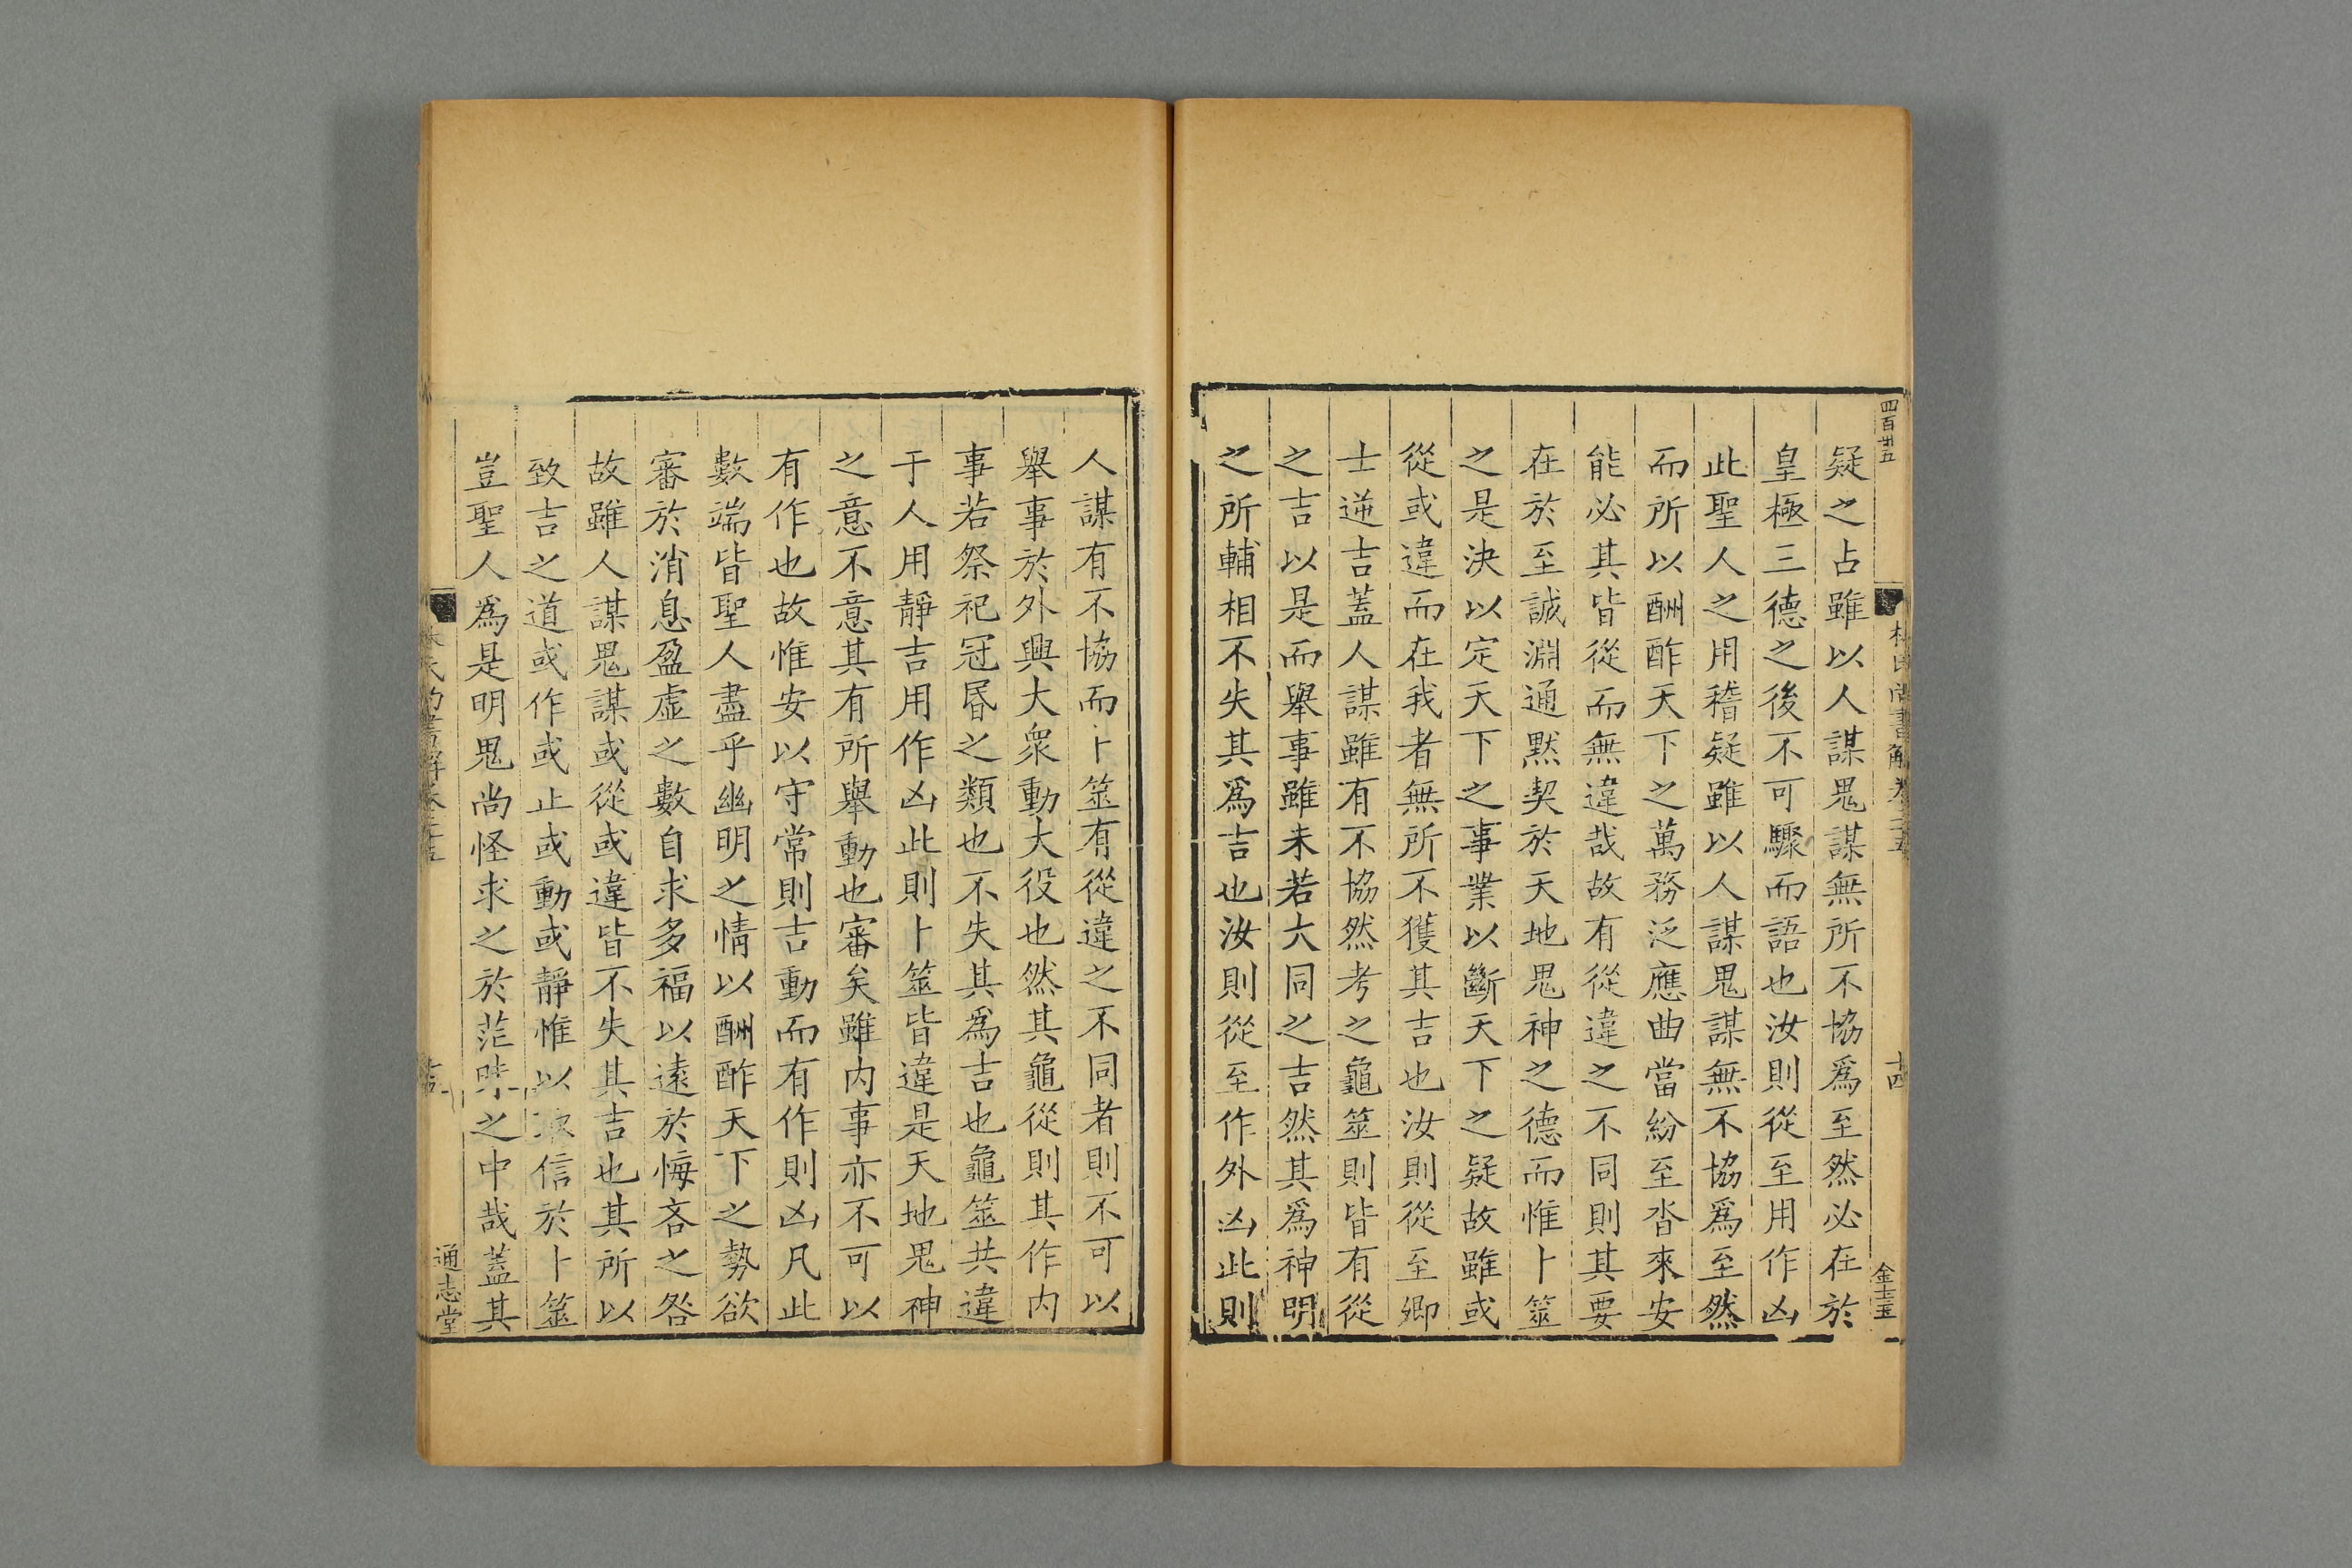 四百卅五
林氏尚書解卷二十五
十四
金士玉
疑之占雖以人謀鬼謀無所不協爲至然必在於
皇極三德之後不可驟而語也汝則從至用作凶
此聖人之用稽疑雖以人謀鬼謀無不協爲至然
而所以酬酢天下之萬務泛應曲當紛至沓來安
能必其皆從而無違哉故有從違之不同則其要
在於至誠淵通默契於天地鬼神之德而惟卜筮
之是決以定天下之事業以斷天下之疑故雖或
從或違而在我者無所不獲其吉也汝則從至卿
士逆吉蓋人謀雖有不協然考之龜筮則皆有從
之吉以是而舉事雖未若大同之吉然其爲神明
之所輔相不失其爲吉也汝則從至作外凶此則
人謀有不協而卜筮有從違之不同者則不可以
舉事於外興大衆動大役也然其龜從則其作內
事若祭祀冠昏之類也不失其爲吉也龜筮共違
于人用靜吉用作凶此則卜筮皆違是天地鬼神
之意不意其有所舉動也審矣雖內事亦不可以
有作也故惟安以守常則吉動而有作則凶凡此
數端皆聖人盡乎幽明之情以酬酢天下之勢欲
審於消息盈虛之數自求多福以遠於悔吝之咎
故雖人謀鬼謀或從或違皆不失其吉也其所以
致吉之道或作或止或動或靜惟以信於卜筮
豈聖人爲是明鬼尚怪求之於茫昧之中哉蓋其
通志堂